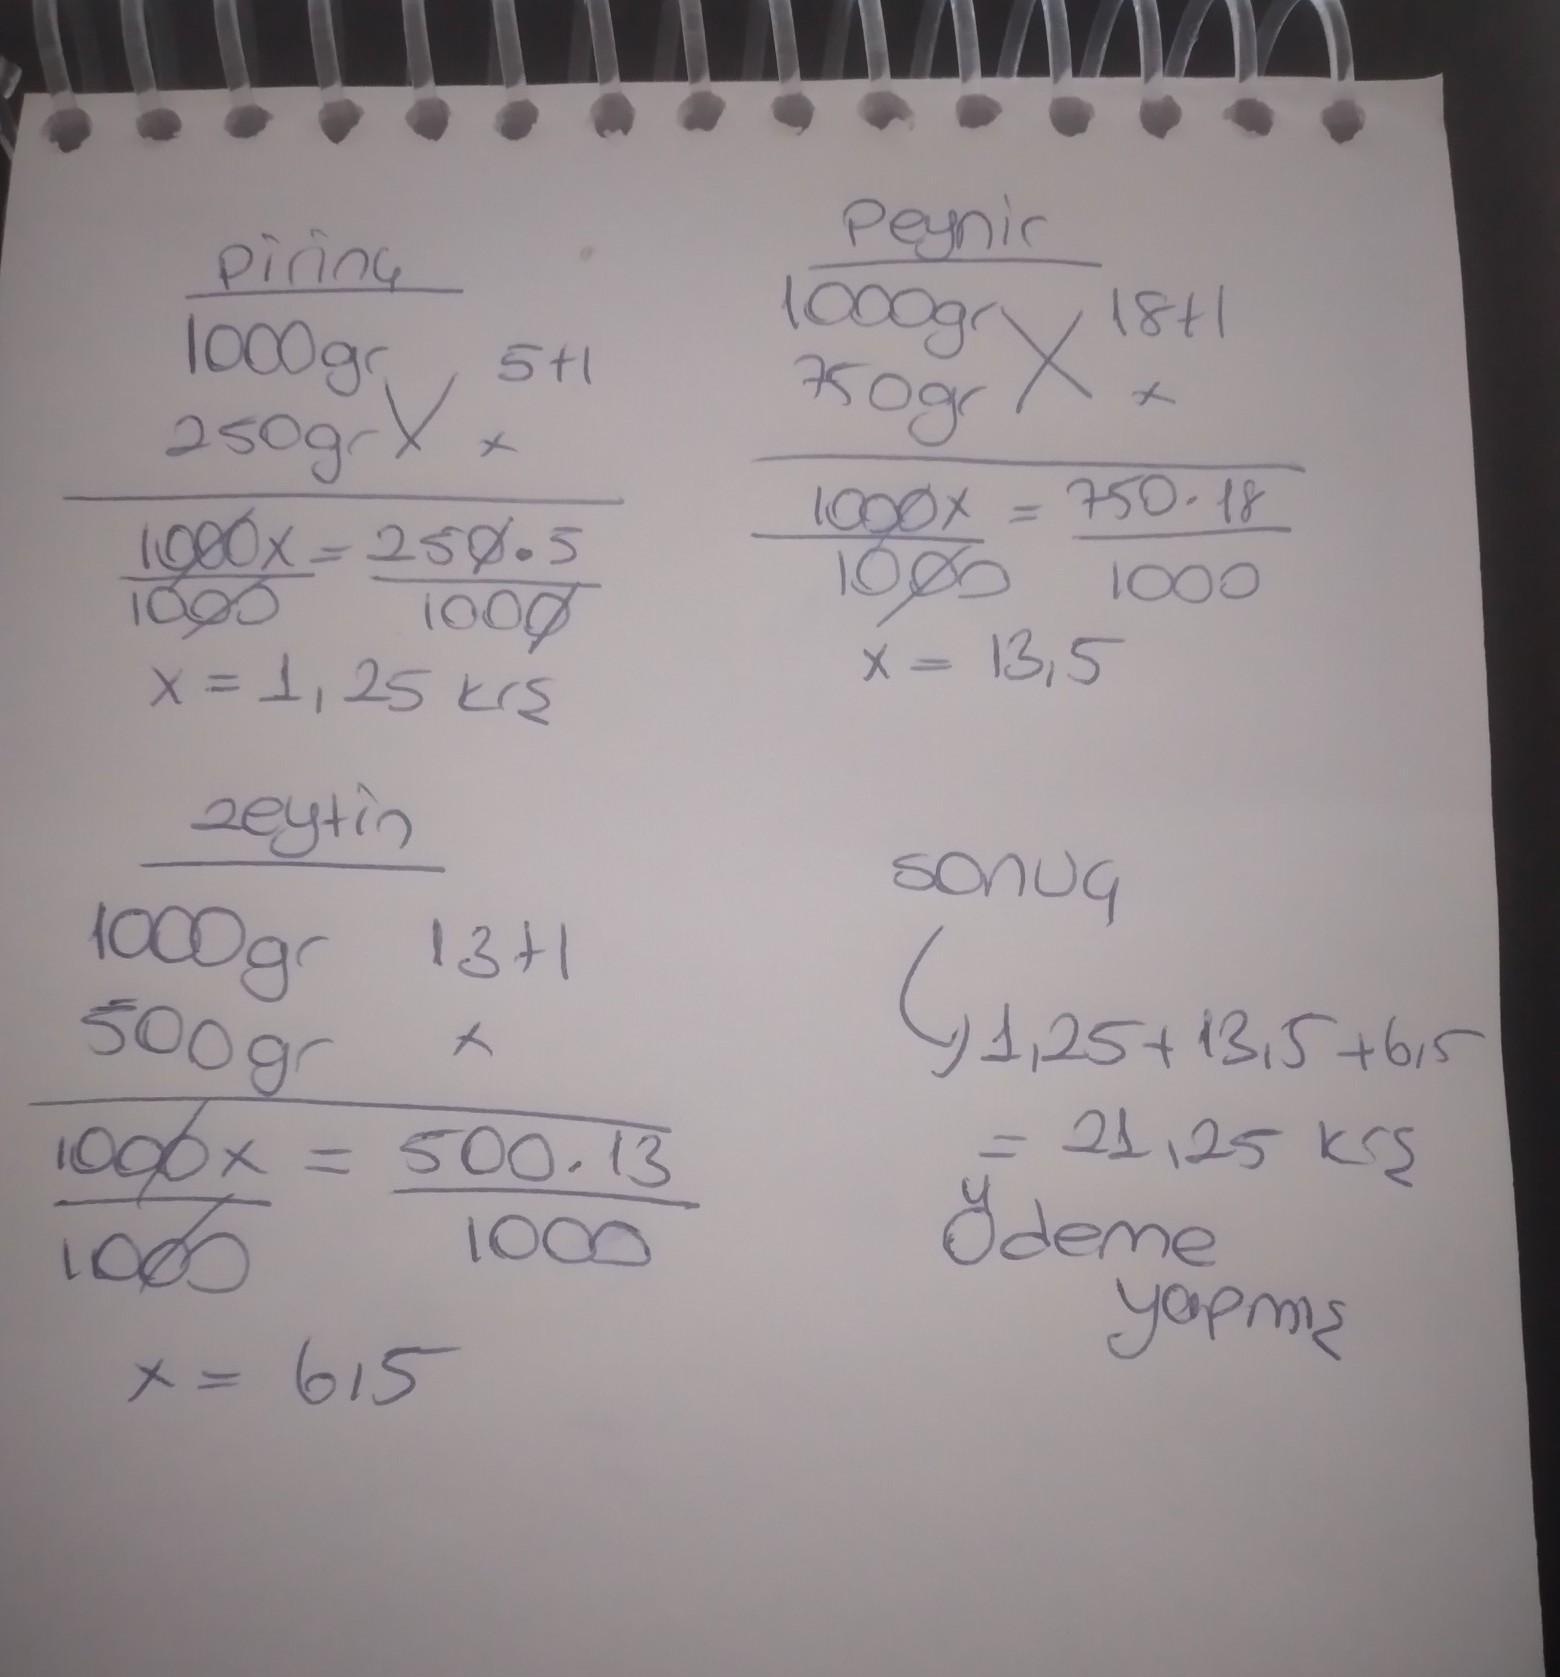 pirinç
1000gr 5+1
250gr x
1000x = 250.5
1000 1000
x = 1,25 krş
Peynir
1000gr 18+1
750gr x
1000x = 750.18
1000 1000
x = 13,5
zeytin
1000gr 13+1
500gr x
1000x = 500.13
1000 1000
x = 6,5
sonuç
1,25+13,5+6,5
= 21,25 krş
Ödeme
yapmış